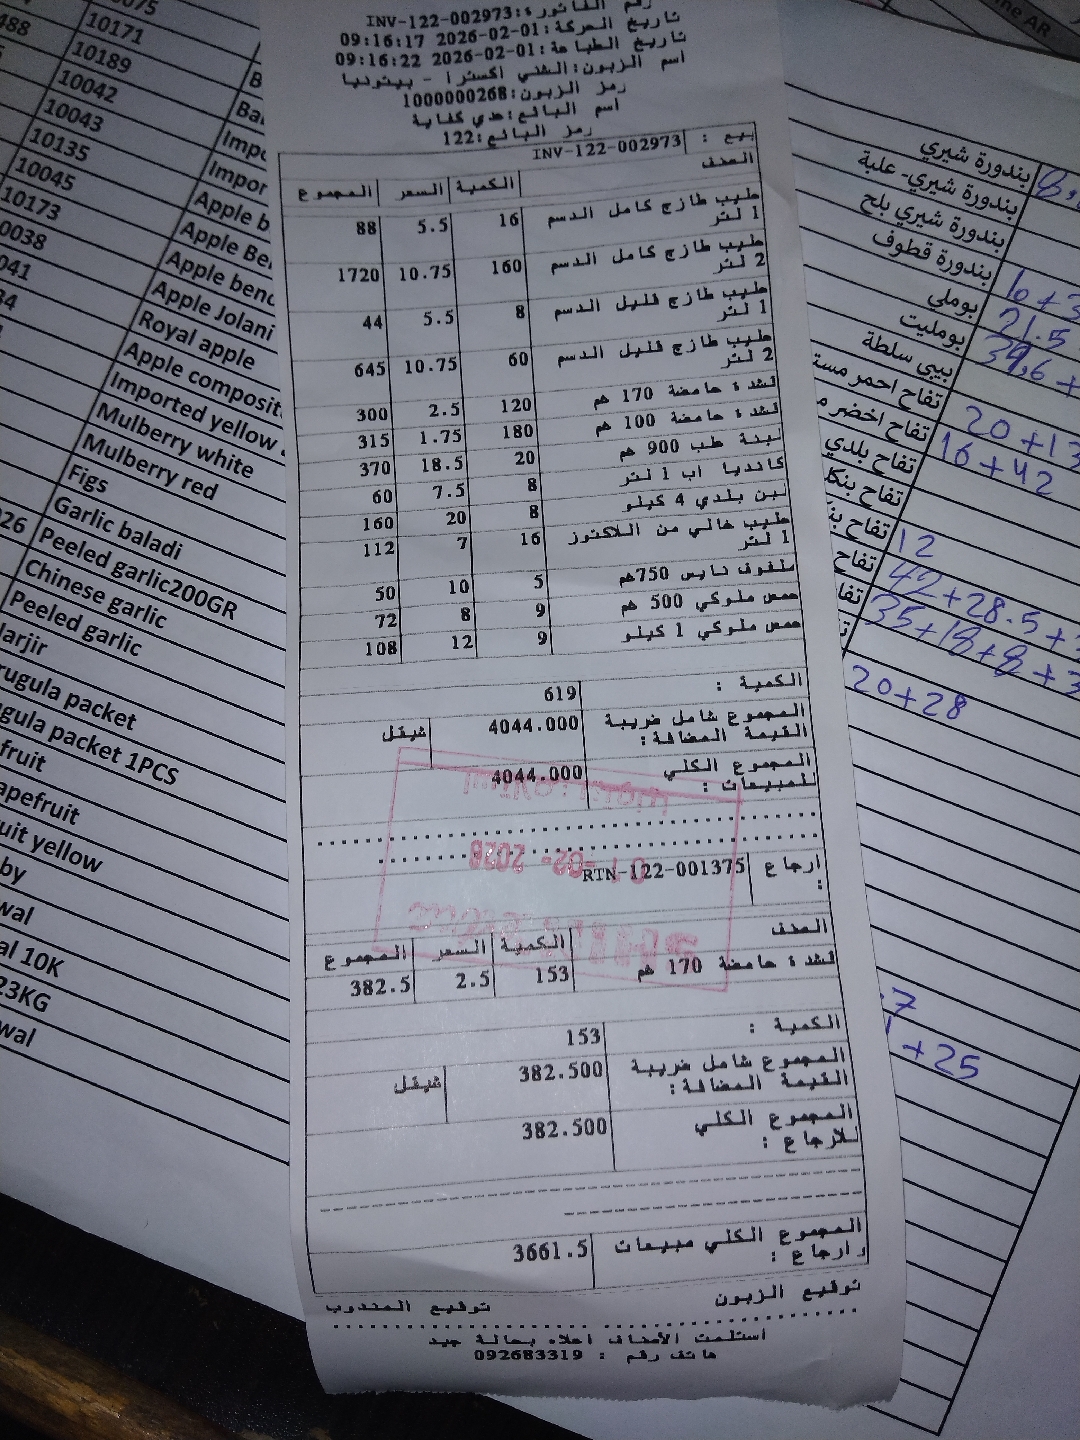 رقم الفاتورة:INV-122-002973
تاريخ الحركة:01-02-2026 09:16:17
تاريخ الطباعة:01-02-2026 09:16:22
اسم الزبون:الشني اكسترا - بيتونيا
رمز الزبون:1000000268
اسم البائع:عدي كفاية
رمز البائع:122
بيع : INV-122-002973
الصنف الكمية السعر المجموع
حليب طازج كامل الدسم 1 لتر 16 5.5 88
حليب طازج كامل الدسم 2 لتر 160 10.75 1720
حليب طازج قليل الدسم 1 لتر 8 5.5 44
حليب طازج قليل الدسم 2 لتر 60 10.75 645
قشدة حامضة 170 غم 120 2.5 300
قشدة حامضة 100 غم 180 1.75 315
لبنة طب 900 غم 20 18.5 370
كانديا اب 1 لتر 8 7.5 60
لبن بلدي 4 كيلو 8 20 160
حليب خالي من اللاكتوز 1 لتر 16 7 112
ملفوف نايس 750غم 5 10 50
حمص ملوكي 500 غم 9 8 72
حمص ملوكي 1 كيلو 9 12 108
الكمية : 619
المجموع شامل ضريبة القيمة المضافة: 4044.000 شيقل
المجموع الكلي للمبيعات : 4044.000
ارجاع : RTN-122-001375
-02- 2026
الصنف الكمية السعر المجموع
قشدة حامضة 170 غم 153 2.5 382.5
الكمية : 153
المجموع شامل ضريبة القيمة المضافة: 382.500 شيقل
المجموع الكلي للارجاع : 382.500
المجموع الكلي مبيعات وارجاع : 3661.5
توقيع الزبون توقيع المندوب
استلمت الأصناف اعلاه بحالة جيد
هاتف رقم : 092683319
10171
10189
10042
10043
10135
10045
10173
0038
Apple b
Apple Be
Apple benc
Apple Jolani
Royal apple
Apple composit
Imported yellow
Mulberry white
Mulberry red
Figs
Garlic baladi
Peeled garlic200GR
Chinese garlic
Peeled garlic
larjir
rugula packet
gula packet 1PCS
fruit
apefruit
uit yellow
by
wal
al 10K
23KG
wal
بندورة شيري
بندورة شيري- علبة
بندورة شيري بلح
بندورة قطوف
بوملي
بومليت
بيبي سلطة
تفاح احمر مست
تفاح اخضر م
تفاح بلدي
تفاح بنك
تفاح بن
تفاح
تفا
21.5
39,6 +
20 +13
16 + 42
12
42+28.5+
35+18+8+3
20+28
+25